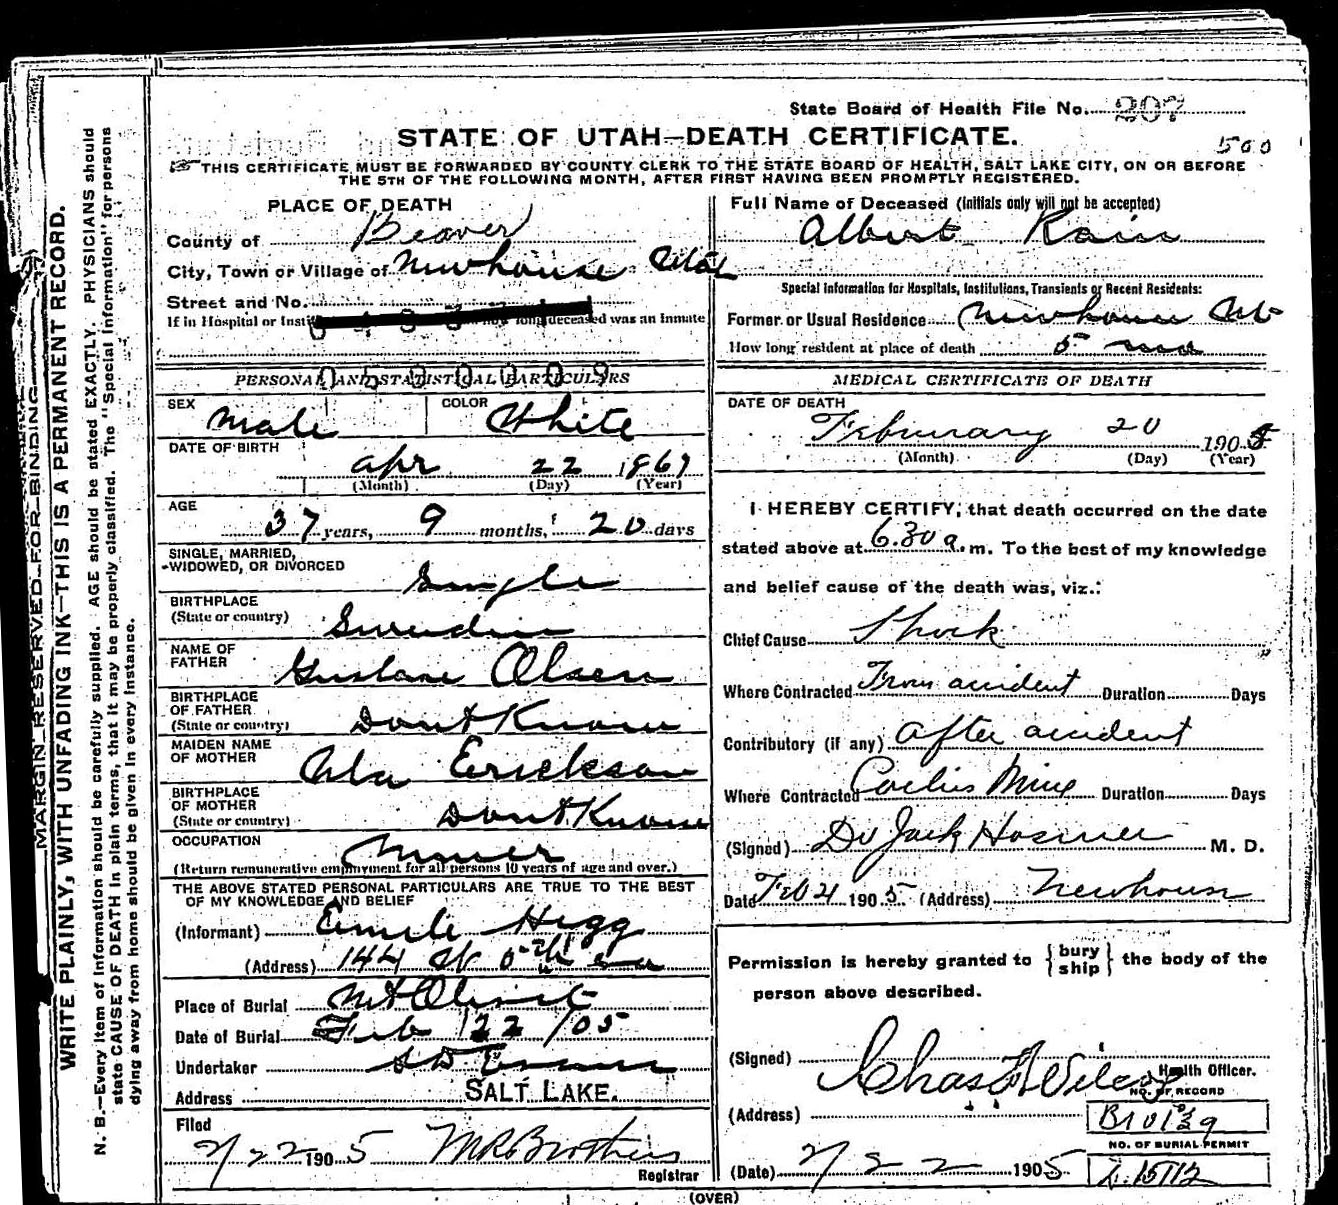 State Board of Health File No. 207
STATE OF UTAH—DEATH CERTIFICATE.
500
THIS CERTIFICATE MUST BE FORWARDED BY COUNTY CLERK TO THE STATE BOARD OF HEALTH, SALT LAKE CITY, ON OR BEFORE
THE 5TH OF THE FOLLOWING MONTH, AFTER FIRST HAVING BEEN PROMPTLY REGISTERED.
MARGIN RESERVED FOR BINDING
WRITE PLAINLY, WITH UNFADING INK—THIS IS A PERMANENT RECORD.
N. B.—Every item of information should be carefully supplied. AGE should be stated EXACTLY. PHYSICIANS should
state CAUSE OF DEATH in plain terms, that it may be properly classified. The "Special Information" for persons
dying away from home should be given in every instance.
PLACE OF DEATH
County of Beaver
City, Town or Village of Newhouse Utah
Street and No.
If in Hospital or deceased was an inmate
PERSONAL AND STATISTICAL PARTICULARS
SEX Male COLOR White
DATE OF BIRTH
Apr 22 1867
(Month) (Day) (Year)
AGE
37 years, 9 months, 20 days
SINGLE, MARRIED,
WIDOWED, OR DIVORCED Single
BIRTHPLACE
(State or country) Swendin
NAME OF
FATHER Gustave Olsen
BIRTHPLACE
OF FATHER
(State or country) Dont Know
MAIDEN NAME
OF MOTHER Erickson
BIRTHPLACE
OF MOTHER
(State or country) Dont Know
OCCUPATION Miner
(Return remunerative employment for all persons 10 years of age and over.)
THE ABOVE STATED PERSONAL PARTICULARS ARE TRUE TO THE BEST
OF MY KNOWLEDGE AND BELIEF
(Informant) Emile Hegg
(Address) 144 W
Place of Burial Mt Olivet
Date of Burial Feb 22/05
Undertaker S D Evans
Address SALT LAKE.
Filed
2/22 1905
Registrar
Full Name of Deceased (Initials only will not be accepted)
Albert Rain
Special Information for Hospitals, Institutions, Transients or Recent Residents:
Former or Usual Residence Newhouse Ut
How long resident at place of death 5
MEDICAL CERTIFICATE OF DEATH
DATE OF DEATH
February 20 1905
(Month) (Day) (Year)
I HEREBY CERTIFY, that death occurred on the date
stated above at 6.30 a. m. To the best of my knowledge
and belief cause of the death was, viz.:
Chief Cause Shock
Where Contracted From accident Duration Days
Contributory (if any) after accident
Where Contracted Cactus Mine Duration Days
(Signed) Dr Jack Hosmer M. D.
Date Feb 21 1905 (Address) Newhouse
Permission is hereby granted to { bury ship } the body of the
person above described.
(Signed) Chas F Wilcox
Health Officer.
(Address)
NO. OF RECORD
B
NO. OF BURIAL PERMIT
(Date) 2/22 1905
(OVER)